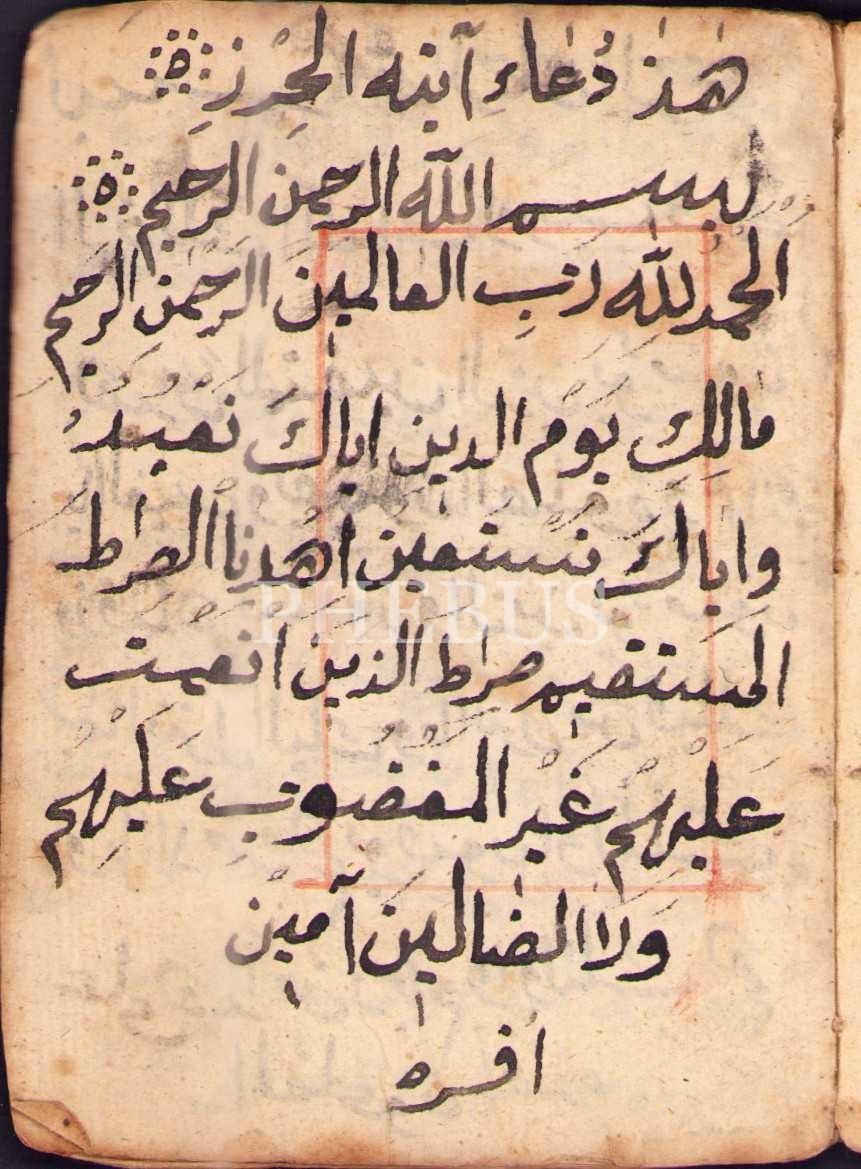 هٰذٰا دُعٰاءِ آيته الحِرْزِ
بسم اللّه الرحمن الرحيم
الحمد للّه رَبِ العالمينَ الرَحْمٰنِ الرحيم
مٰالِكِ يَوْم الدين اياكَ نعبدُ
وٳياكَ نستعين اهْدِنٰا الصِرٰاط
المستقيم صراط الذين انعمت
عَلَيْهِمْ غَيْر المغضوبِ عَلَيْهِمْ
وَلا الضٰالينَ آمين
PHEBUS